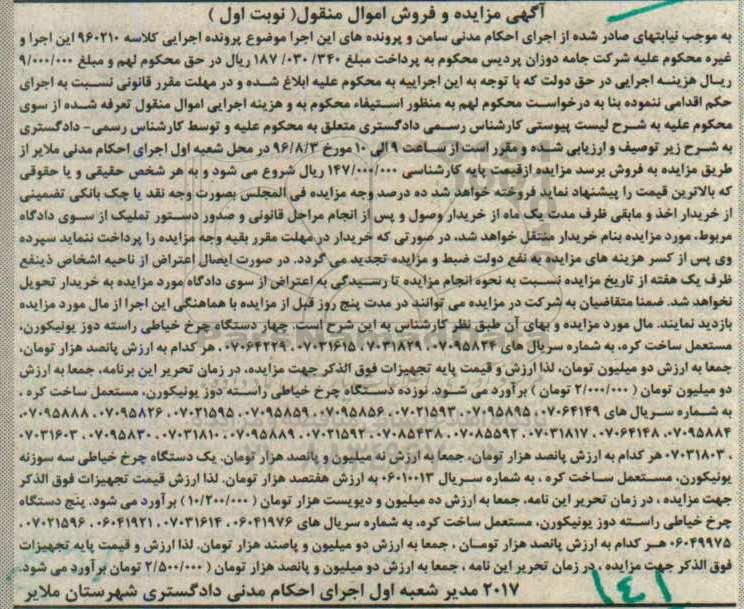 آگهی مزایده و فروش اموال منقول( نوبت اول )
به موجب نیابتهای صادر شده از اجرای احکام مدنی سامن و پرونده های این اجرا موضوع پرونده اجرایی کلاسه ۹۶۰۲۱۰ این اجرا و
غیره محکوم علیه شرکت جامه دوزان پردیس محکوم به پرداخت مبلغ ۱۸۷/۰۳۰/۳۴۰ ریال در حق محکوم لهم و مبلغ ۹/۰۰۰/۰۰۰
ریـال هزینـه اجرایی در حق دولت که با توجه به این اجراییه به محکوم علیه ابلاغ شـده و در مهلت مقرر قانونی نسـبت به اجرای
حکم اقدامی ننموده بنا به درخواسـت محکوم لهم به منظور اسـتیفاء محکوم به و هزینه اجرایی اموال منقول تعرفه شـده از سوی
محکوم علیه به شـرح لیست پیوستی کارشناس رسـمی دادگستری متعلق به محکوم علیه و توسط کارشناس رسمی- دادگستری
به شـرح زیر توصیف و ارزیابی شـده و مقرر است از سـاعت ۹ الی ۱۰ مورخ ۹۶/۸/۳ در محل شعبه اول اجرای احکام مدنی ملایر از
طریق مزایده به فروش برسد مزایده ازقیمت پایه کارشناسی ۱۴۷/۰۰۰/۰۰۰ ریال شروع می شود و به هر شخص حقیقی و یا حقوقی
که بالاترین قیمت را پیشنهاد نماید فروخته خواهد شد ده درصد وجه مزایده فی المجلس بصورت وجه نقد یا چک بانکی تضمینی
از خریدار اخذ و مابقی ظرف مدت یک ماه از خریدار وصول و پس از انجام مراحل قانونی و صدور دسـتور تملیک از سـوی دادگاه
مربوط، مورد مزایده بنام خریدار منتقل خواهد شد، در صورتی که خریدار در مهلت مقرر بقیه وجه مزایده را پرداخت ننماید سپرده
وی پس از کسر هزینه های مزایده به نفع دولت ضبط و مزایده تجدید می گردد. در صورت ایصال اعتراض از ناحیه اشخاص ذینفع
ظرف یک هفته از تاریخ مزایده نسـبت به نحوه انجام مزایده تا رسـیدگی به اعتراض از سوی دادگاه مورد مزایده به خریدار تحویل
نخواهد شد. ضمنا متقاضیان به شرکت در مزایده می توانند در مدت پنج روز قبل از مزایده با هماهنگی این اجرا از مال مورد مزایده
بازدید نمایند. مال مورد مزایده و بهای آن طبق نظر کارشناس به این شرح است. چهار دستگاه چرخ خیاطی راسته دوز یونیکورن،
مستعمل ساخت کره، به شماره سریال های ۰۷۰۹۵۸۲۴ ، ۰۷۰۳۱۸۲۹ ، ۰۷۰۳۱۶۱۵ ، ۰۷۰۶۴۲۲۹ ، هر کدام به ارزش پانصد هزار تومان،
جمعا به ارزش دو میلیون تومان، لذا ارزش و قیمت پایه تجهیزات فوق الذکر جهت مزایده، در زمان تحریر این برنامه، جمعا به ارزش
دو میلیون تومان ( ۲/۰۰۰/۰۰۰ تومان ) برآورد می شـود. نوزده دسـتگاه چرخ خیاطی راسـته دوز یونیکورن، مستعمل ساخت کره ،
به شـماره سـریال های ۰۷۰۶۴۱۴۹ ، ۰۷۰۹۵۸۹۵ ، ۰۷۰۲۱۵۹۳ ، ۰۷۰۹۵۸۵۶ ، ۰۷۰۹۵۸۵۹ ، ۰۷۰۲۱۵۹۵ ، ۰۷۰۹۵۸۲۶ ، ۰۷۰۹۵۸۸۸ ،
۰۷۰۹۵۸۸۴ ، ۰۷۰۶۴۱۴۸ ، ۰۷۰۳۱۸۱۷ ، ۰۷۰۸۵۵۹۲ ، ۰۷۰۸۵۴۳۸ ، ۰۷۰۲۱۵۹۲ ، ۰۷۰۹۵۸۸۹ ، ۰۷۰۳۱۸۱۰ ، ۰۷۰۹۵۸۳۰ ، ۰۷۰۳۱۶۰۳
، ۰۷۰۳۱۸۰۳ هر کدام به ارزش پانصد هزار تومان، جمعا به ارزش نه میلیون و پانصد هزار تومان. یک دستگاه چرخ خیاطی سه سوزنه
یونیکورن، مسـتعمل ساخت کره ، به شماره سـریال ۰۶۰۱۰۰۱۳ به ارزش هفتصد هزار تومان. لذا ارزش قیمت تجهیزات فوق الذکر
جهت مزایده ، در زمان تحریر این نامه، جمعا به ارزش ده میلیون و دیویست هزار تومان ( ۱۰/۲۰۰/۰۰۰ ) برآورد می شود. پنج دستگاه
چرخ خیاطی راسـته دوز یونیکورن، مستعمل ساخت کره، به شماره سریال های ۰۶۰۴۱۹۷۶ ، ۰۷۰۳۱۶۱۴ ، ۰۶۰۴۱۹۲۱ ، ۰۷۰۲۱۵۹۶ ،
۰۶۰۴۹۹۷۵ هـر کدام به ارزش پانصد هزار تومـان ، جمعا به ارزش دو میلیون و پاصند هزار تومان. لذا ارزش و قیمت پایه تجهیزات
فوق الذکر جهت مزایده ، در زمان تحریر این نامه ، جمعا به ارزش دو میلیون و پانصد هزار تومان ( ۲/۵۰۰/۰۰۰ تومان برآورد می شود.
۲۰۱۷ مدیر شعبه اول اجرای احکام مدنی دادگستری شهرستان ملایر
۱۴۱